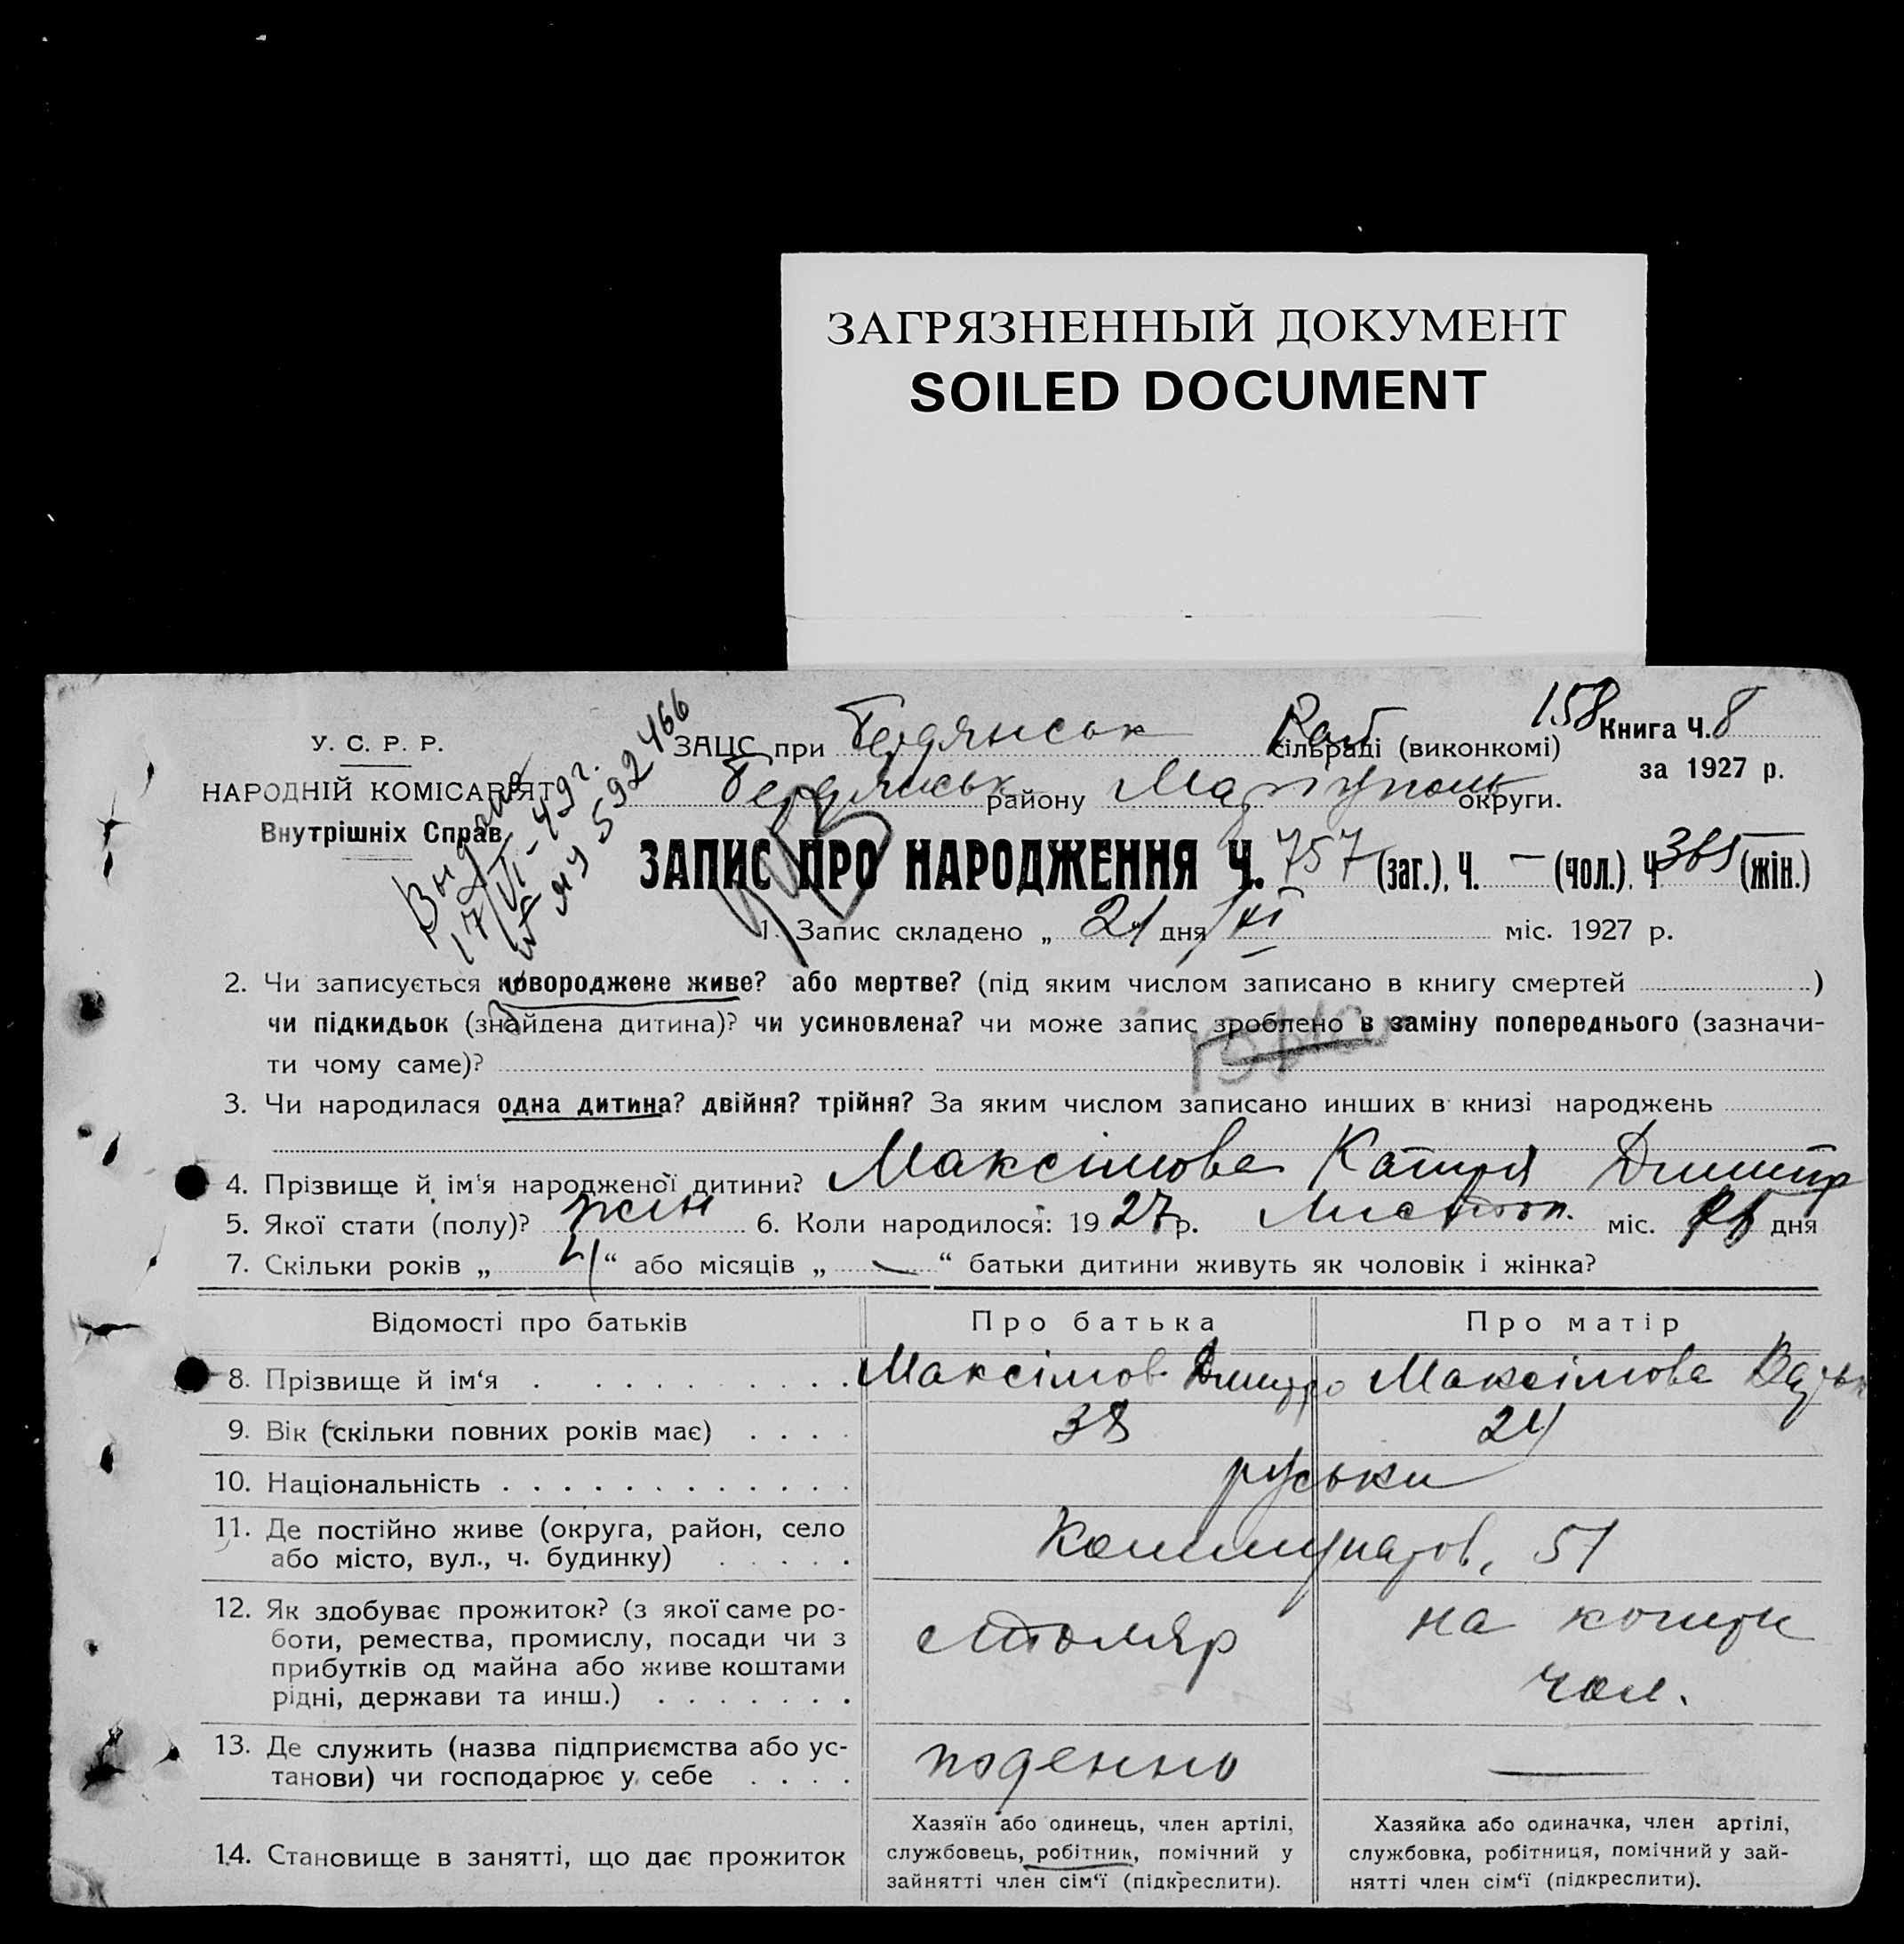 ЗАГРЯЗНЕННЫЙ ДОКУМЕНТ
SOILED DOCUMENT
У. С. Р. Р.
НАРОДНІЙ КОМІСАРІЯТ
Внутрішніх Справ
158 Книга Ч. 8
за 1927 р.
ЗАЦС при Бердянськ сільраді (виконкомі)
Бердянськ району Маріуполь округи.
17/VI-49г.
592466
ЗАПИС ПРО НАРОДЖЕННЯ Ч. 757 (заг.), Ч. — (чол.), Ч. 365 (жін.)
1. Запис складено „ 21 дня XI міс. 1927 р.
2. Чи записується новороджене живе? або мертве? (під яким числом записано в книгу смертей )
чи підкидьок (знайдена дитина)? чи усиновлена? чи може запис зроблено в заміну попереднього (зазначи-
ти чому саме)?
3. Чи народилася одна дитина? двійня? трійня? За яким числом записано инших в книзі народжень
4. Прізвище й ім'я народженої дитини? Максімова Катря Дмитр
5. Якої стати (полу)? жін 6. Коли народилося: 1927 р. Листоп. міс. дня
7. Скільки років „ 4 “ або місяців „ — “ батьки дитини живуть як чоловік і жінка?
Відомості про батьків Про батька Про матір
8. Прізвище й ім'я Максімов Дмитро Максімова
9. Вік (скільки повних років має) 38 24
10. Національність руськи
11. Де постійно живе (округа, район, село
або місто, вул., ч. будинку) Коммунаров, 51
12. Як здобуває прожиток? (з якої саме ро-
боти, ремества, промислу, посади чи з
прибутків од майна або живе коштами
рідні, держави та инш.)
столяр
на кошти
чол.
13. Де служить (назва підприємства або ус-
танови) чи господарює у себе
поденно —
14. Становище в занятті, що дає прожиток
Хазяїн або одинець, член артілі,
службовець, робітник, помічний у
зайнятті член сім'ї (підкреслити).
Хазяйка або одиначка, член артілі,
службовка, робітниця, помічний у зай-
нятті член сім'ї (підкреслити).